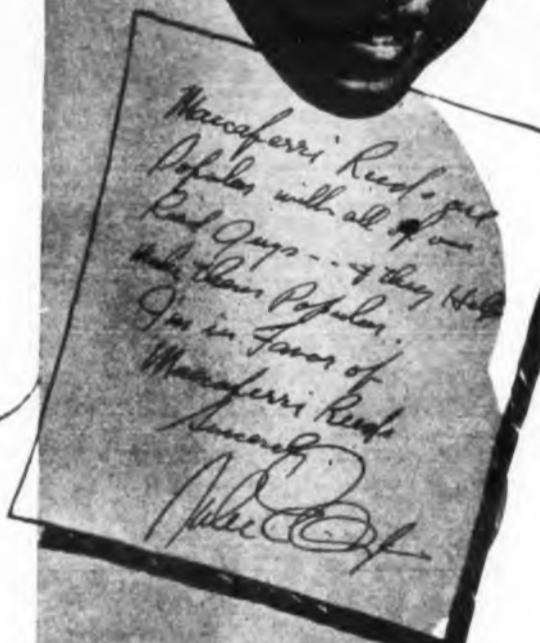 Maccaferri Reeds are
Popular with all of our
Reed Guys -- & they Help
make them Popular.
I'm in Favor of
Maccaferri Reeds
Sincerely,